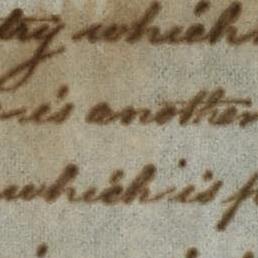 try which
is another
which is f